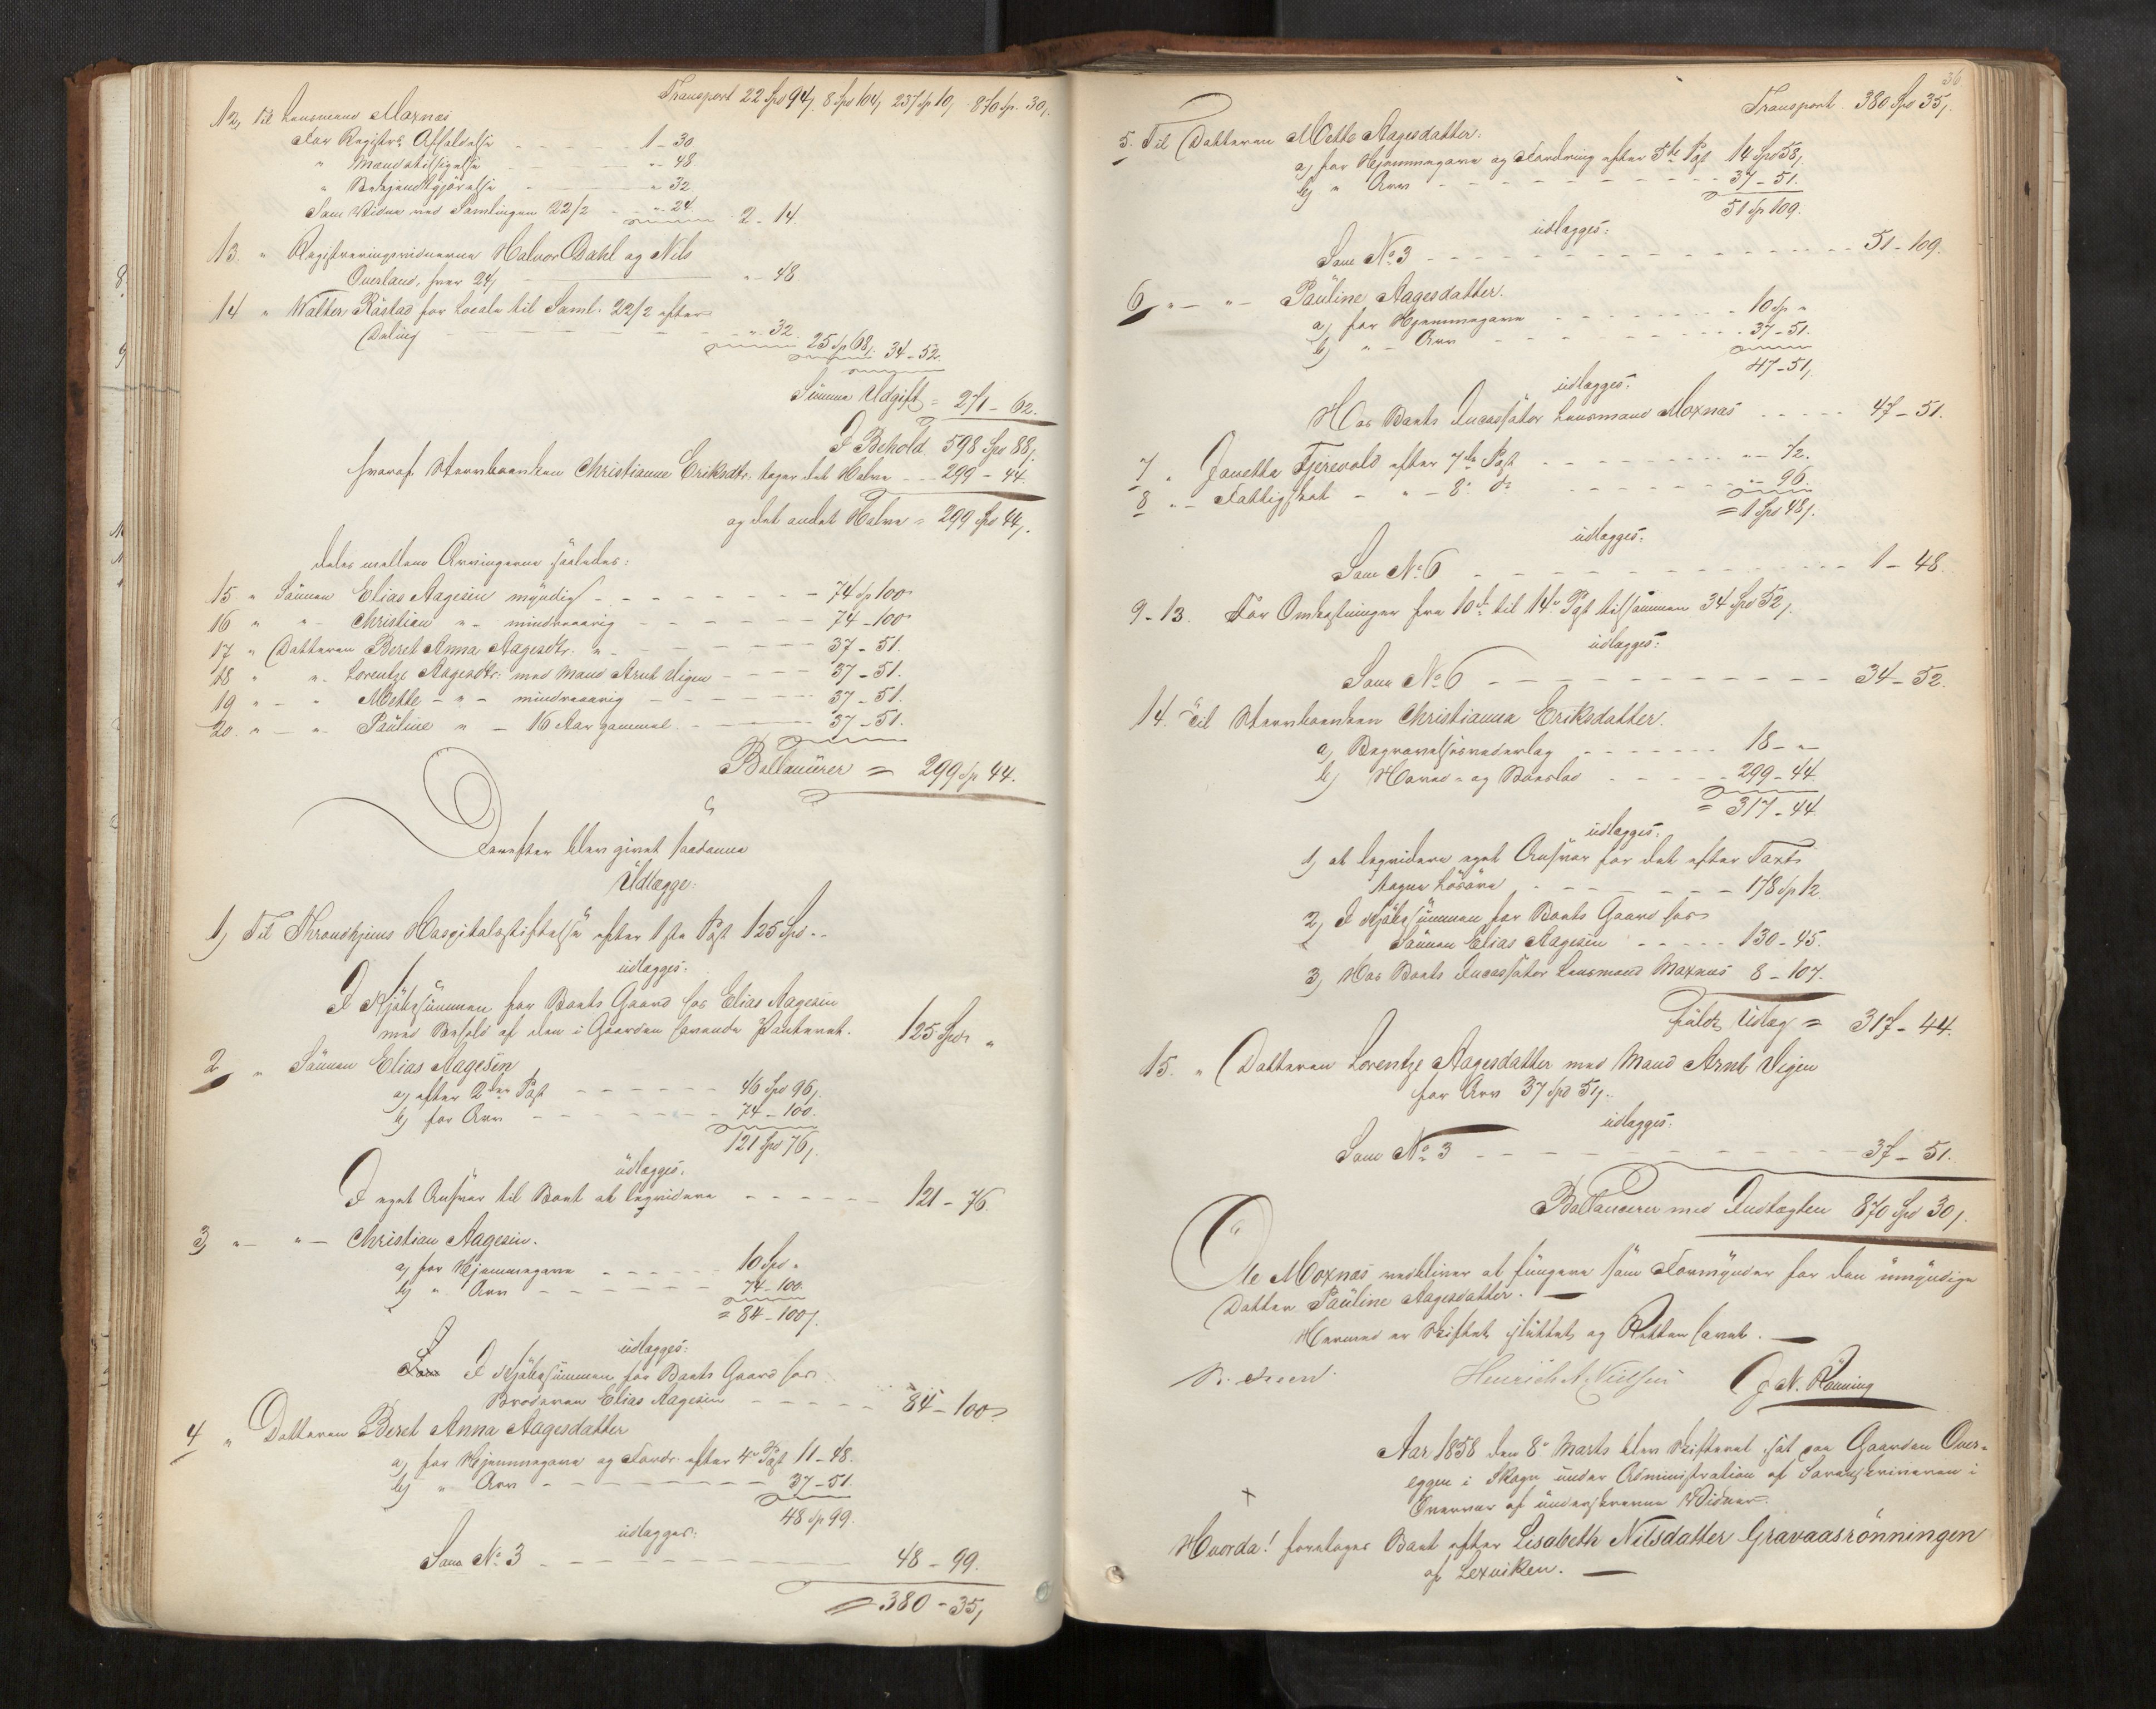 Transport 22 Spd 94, 8 Spd 104, 237 Sp 10, 870 Sp. 30,
12, Til Lensmand Moxnæs
For Registrs Afholdelse - - - - - 1 - 30
" Mandstilsigelse - - " - 48
" Bekjendtgjørelse - - " 32
Som Vidne ved Samlingen 22/2 - - " - 24.
2 - 14.
13. " Registreringsvidnerne Halvor Dahl og Nils
Overland, hver 24, " - 48
14 " Walter Råstad for Locale til Saml. 22/2 efter
Deling - - - - - - " - 32
25 Sp 68, 34 - 52.
Summa Udgift = 271 - 62.
I Behold 598 Spd 88,
hvoraf Stervboenken Christianna Eriksdtr. tager det Halve - - 299 - 44.
og det andet Halve = 299 Spd 44,.
deles mellem Arvingerne saaledes:
15 " Sønnen Elias Aagesen myndig - - - - - - - 74 Sp 100
16 " " - Christian " - mindreaarig - - - - - 74 - 100
17 " Datteren Beret Anna Aagesdtr. " - - - - - - 37 - 51.
18 " " - Lorentze Aagesdtr. med Mand Arnt Vigen - - - 37 - 51.
19 " - " Mette - " - mindreaarig - - - - - 37 - 51.
20. " - " - Pauline " - 16 Aar gammel. - - 37 - 51.
Ballancerer = 299 Sp 44.
Derefter blev givet saadanne
Udlægge:
1) Til Throndhjems Hospitalsstiftelse efter 1ste Post 125 Spd " -
udlægges:
I Kjøbesummen for Boets Gaard hos Elias Aagesen
med Behold af den i Gaarden havende Panteret. 125 Spd "
2 " Sønnen Elias Aagesen
a) efter 2den Post - - - - - - 46 Spd 96,
b) for Arv - - - - - - - 74 - 100.
121 Spd 76,
udlægges:
I eget Ansvar til Boet at liqvidere - - - - - - 121 - 76.
3, " - " - Christian Aagesen.
a) for Hjemmegave - - - - - 10 Spd "
b) " Arv - - - - - - 74 - 100.
= 84 - 100,
udlægges:
I Kjøbesummen for Boets Gaard hos
Broderen Elias Aagesen - - - - - 84 - 100
4 " Datteren Beret Anna Aagesdatter
a) for Hjemmegave og Fordr. efter 4de Post 11 - 48.
b) " Arv - - - - - - - 37 - 51.
48 Sp 99.
udlægges:
Som No 3 - - - - - - - - - 48 - 99.
= 380 - 35,
36
Transport 380 Spd 35,
5. Til Datteren Mette Aagesdatter:
a) for Hjemmegave og Fordring efter 5te Post 14 Spd 58,
b) " Arv - - - - - - - - - - 37 - 51.
51 Sp 109.
udlægges:
Som No 3 - - - - - - - - - - - - 51 - 109.
6, " - " - Pauline Aagesdatter.
a) for Hjemmegave - - - - - - 10 Sp "
b) " - Arv - - - - - - - 37 - 51.
47 - 51,
udlægges:
Hos Boets Incassator Lensmand Moxnæs - - - - - 47 - 51.
7 " Janetta Fjerevold efter 7de Post - - - - - - - " - 72.
8 " - Fattigskat - " - 8de do - - - - - - " - 96.
= 1 Spd 48,
udlægges:
Som No 6 - - - - - - - - - - - 1 - 48.
9 - 13. For Omkostninger fra 10de til 14de Post tilsammen 34 Spd 52,
udlægges:
Som No 6 - - - - - - - - - - - 34 - 52.
14. Til Stervboenken Christianna Eriksdatter.
a) Begravelsesvederlag - - - - - - 18 - "
b) Hoved- og Boeslod - - - - - 299 - 44
= 317 - 44.
udlægges:
1) at liqvidere eget Ansvar for det efter Taxt
tagne Løsøre - - - - - - - 178 Sp 12
2) I Kjøbesummen for Boets Gaard hos
Sønnen Elias Aagesen - - - - - 130 - 45.
3) Hos Boets Incassator Lensmand Moxnæs 8 - 107.
fuldt Udlæg = 317 - 44.
15. " Datteren Lorentze Aagesdatter med Mand Arnt Vigen
for Arv 37 Spd 51,.
udlægges:
Som No 3 - - - - - - - - - - 37 - 51.
Ballancerer med Indtægten 870 Spd 30,.
Ole Moxnæs vedbliver at fungere som Formynder for den umyndige
Datter Pauline Aagesdatter. —
Hermed er Skiftet sluttet og Retten hævet. —
Henrich N. Nielsen J. N. Rönning
Aar 1858 den 8de Marts blev Skifteret sat paa Gaarden Over-
eggen i Skogn under Administration af Sorenskriveren i
Overvær af underskrevne Vidner.
Hvorda! foretoges Boet efter Lisabeth Nilsdatter Gravaasrönningen
af Lexviken. —